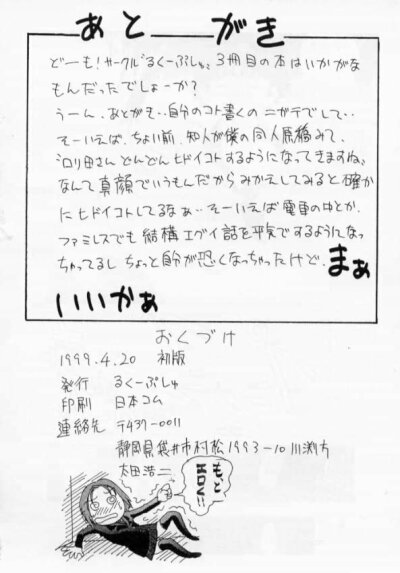 あとがき
どーも!サークル"るくーぷしゅ"3冊目の本はいかがな
もんだったでしょーか?
うーん、あとがき…自分のコト書くのニガテでして…
そーいえば、ちょい前、知人が僕の同人原稿みて、
んなさんどんどんヒドイコトするようになってきますね。
なんて真顔でいうもんだからみかえしてみると確か
にヒドイコトしてるなぁ…そーいえば電車の中とか、
ファミレスでも結構エグイ話を平気でするようになっ
ちゃってるし ちょっと自分が恐くなっちゃったけど、まぁ
いいかぁ
おくづけ
1999.4.20 初版
発行 るくーぷしゅ
印刷 日本コム
連絡先 〒437-0011
静岡県袋井市村松1993-10 川渕方
太田浩二